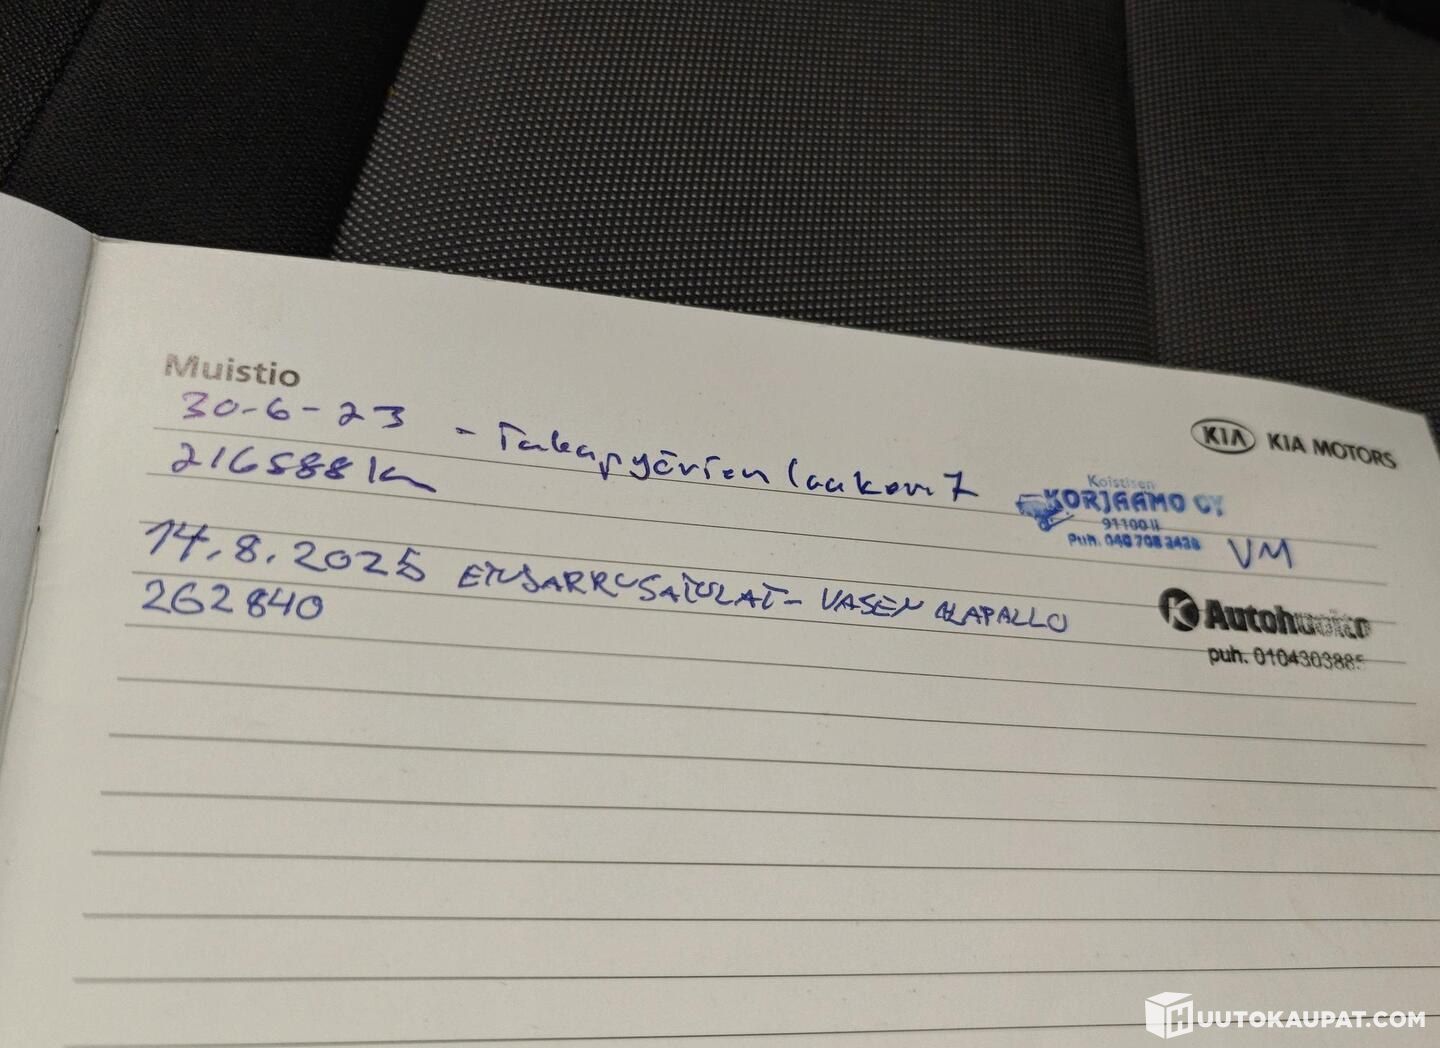 Muistio
KIA KIA MOTORS
30-6-23 - Takapyörien laakerit
216588 km
Koistisen
KORJAAMO OY
91100 Ii
Puh. 040 708 3438
VM
14.8.2025 ETUJARRUSATULAT - VASEN ALAPALLO
262840
K Autohuolto
puh. 0104303885
HUUTOKAUPAT.COM